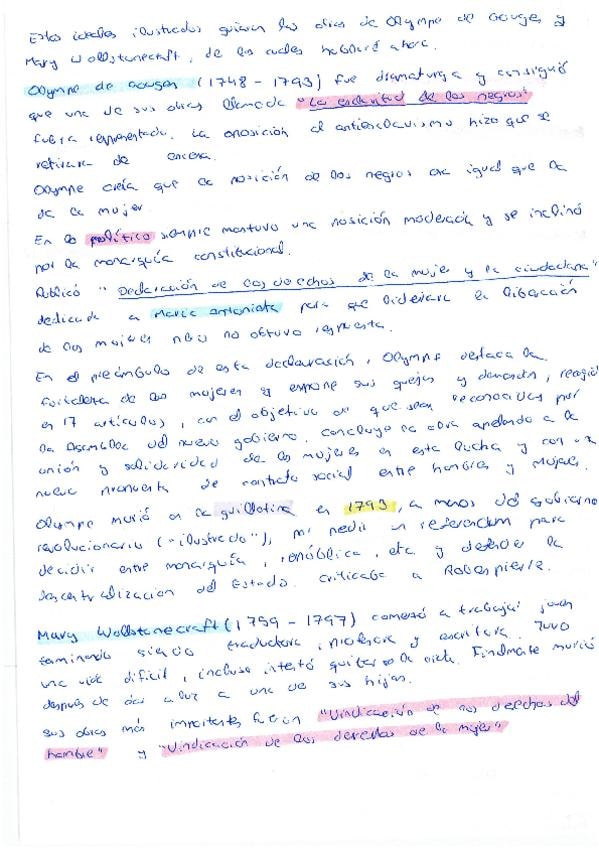 Estos ideales ilustrados guiaron las obras de Olympe de Gouges y
Mary Wollstonecraft, de las cuales hablaré ahora.
Olympe de Gouges (1748 - 1793) fue dramaturga y consiguió
que una de sus obras llamada "La esclavitud de los negros"
fuera representada. La oposición al antiesclavismo hizo que se
retirara de escena.
Olympe creía que la posición de los negros era igual que la
de la mujer.
En lo político siempre mantuvo una posición moderada y se inclinó
por la monarquía constitucional.
Publicó "Declaración de los derechos de la mujer y la ciudadana"
dedicada a Maria Antonieta para que liderara la liberación
de las mujeres pero no obtuvo respuesta.
En el preámbulo de esta declaración, Olympe destaca la
fortaleza de las mujeres y expone sus quejas y demandas, recogidas
en 17 artículos, con el objetivo de que sean reconocidas por
la Asamblea del nuevo gobierno. Concluye la obra apelando a la
unión y solidaridad de las mujeres en esta lucha y con una
nueva propuesta de contrato social entre hombres y mujeres.
Olympe murió en la guillotina en 1793, a manos del gobierno
revolucionario ("ilustrado"), por pedir un referendum para
decidir entre monarquía, república, etc y defender la
descentralización del Estado. Criticaba a Robespierre.
Mary Wollstonecraft (1759 - 1797) comenzó a trabajar joven
terminando siendo traductora, profesora y escritora. Tuvo
una vida difícil, incluso intentó quitarse la vida. Finalmente murió
después de dar a luz a una de sus hijas.
Sus obras más importantes fueron "Vindicación de los derechos del
hombre" y "Vindicación de los derechos de la mujer"